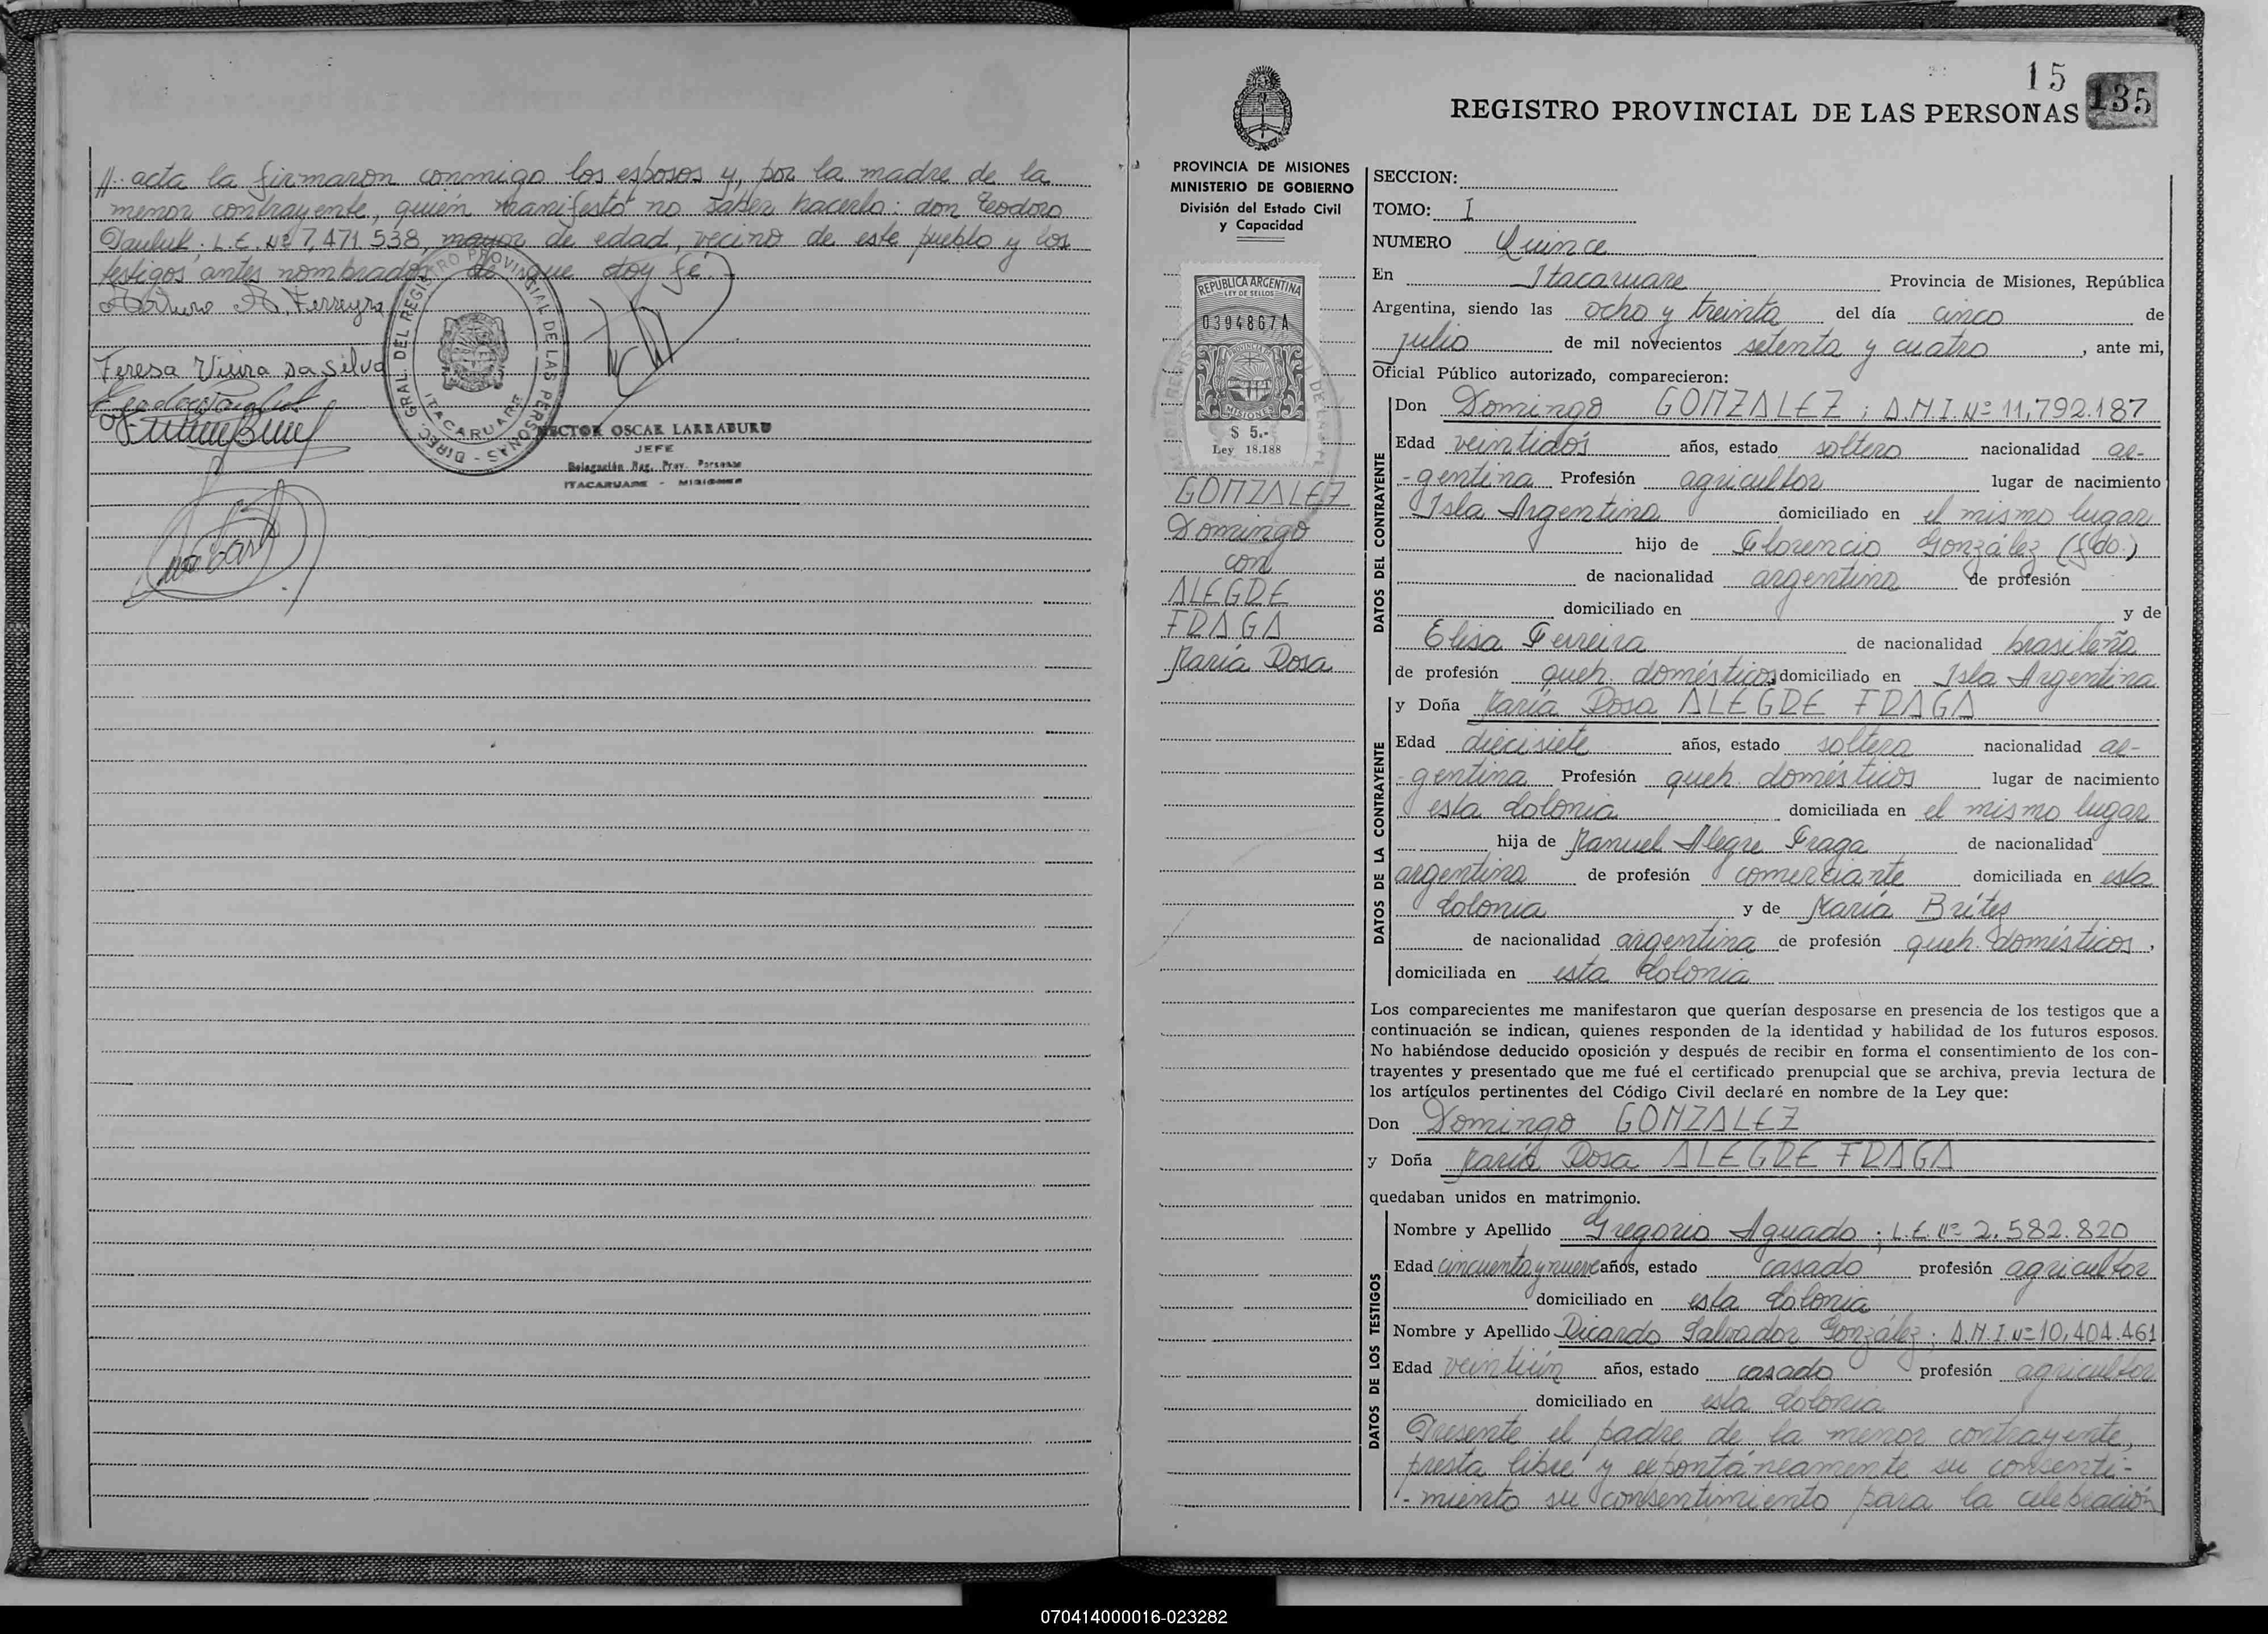 //- acta la firmaron conmigo los esposos y, por la madre de la
menor contrayente, quién manifestó no saber hacerlo: don Teodoro
L.E. Nº 7,471.538, mayor de edad, vecino de este pueblo y los
testigos antes nombrados de que doy fé.-
Arturo A. Ferreyra
Teresa Vieira Da Silva
DIREC. GRAL. DEL REGISTRO PROVINCIAL DE LAS PERSONAS -
ITACARUARE
HECTOR OSCAR LARRABURU
JEFE
Delegación Reg. Prov. Personas
ITACARUARE - MISIONES
15
135
REGISTRO PROVINCIAL DE LAS PERSONAS
PROVINCIA DE MISIONES
MINISTERIO DE GOBIERNO
División del Estado Civil
y Capacidad
REPUBLICA ARGENTINA
LEY DE SELLOS
0394867A
PROVINCIA DE
MISIONES
$ 5.-
Ley 18.188
GONZALEZ
Domingo
con
ALEGRE
FRAGA
María Rosa
SECCION:
TOMO: I
NUMERO Quince
En Itacaruare Provincia de Misiones, República
Argentina, siendo las ocho y treinta del día cinco de
julio de mil novecientos setenta y cuatro, ante mi,
Oficial Público autorizado, comparecieron:
DATOS DEL CONTRAYENTE
Don Domingo GONZALEZ; D.N.I. Nº 11,792.187
Edad veintidós años, estado soltero nacionalidad ar-
-gentina Profesión agricultor lugar de nacimiento
Isla Argentina domiciliado en el mismo lugar
hijo de Florencio González (fdo.)
de nacionalidad argentina de profesión
domiciliado en y de
Elisa Ferreira de nacionalidad brasileña
de profesión queh. domésticos domiciliado en Isla Argentina
DATOS DE LA CONTRAYENTE
y Doña María Rosa ALEGRE FRAGA
Edad diecisiete años, estado soltera nacionalidad ar-
-gentina Profesión queh. domésticos lugar de nacimiento
esta Colonia domiciliada en el mismo lugar
hija de Manuel Alegre Fraga de nacionalidad
argentina de profesión comerciante domiciliada en esta
Colonia y de María Brítez
de nacionalidad argentina de profesión queh. domésticos,
domiciliada en esta Colonia
Los comparecientes me manifestaron que querían desposarse en presencia de los testigos que a
continuación se indican, quienes responden de la identidad y habilidad de los futuros esposos.
No habiéndose deducido oposición y después de recibir en forma el consentimiento de los con-
trayentes y presentado que me fué el certificado prenupcial que se archiva, previa lectura de
los artículos pertinentes del Código Civil declaré en nombre de la Ley que:
Don Domingo GONZALEZ
y Doña María Rosa ALEGRE FRAGA
quedaban unidos en matrimonio.
DATOS DE LOS TESTIGOS
Nombre y Apellido Gregorio Aguado; L.E. Nº 2.582.820
Edad cincuenta y nueve años, estado casado profesión agricultor
domiciliado en esta Colonia
Nombre y Apellido Ricardo Salvador González; D.N.I. Nº 10,404.461
Edad veintiún años, estado casado profesión agricultor
domiciliado en esta Colonia
Presente el padre de la menor contrayente,
presta libre y expontáneamente su consenti-
-miento su consentimiento para la celebración
070414000016-023282